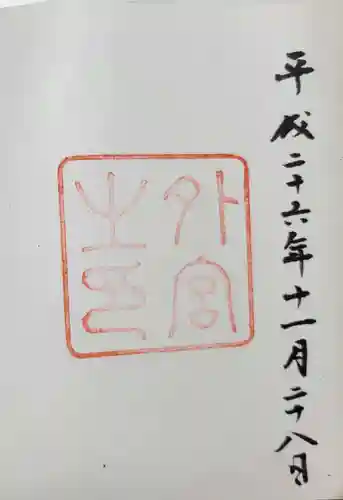 平成二十六年十一月二十八日
外宮
之印